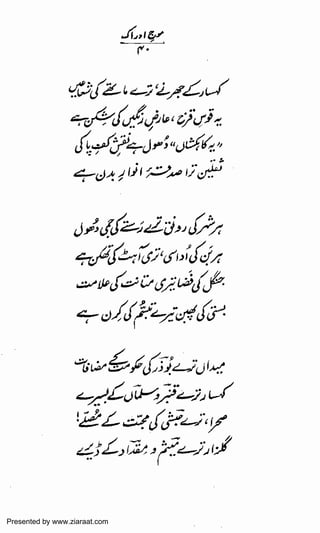 موجِ ادراک
۴۰
کہسار کے جھرنے ترے ماتھے کی شعاعیں
یہ قوسِ قزح، عارضِ رنگیں کی شکن ہے
یہ "کاہکشاں" دھول ہے نقشِ کفِ پا کی
ثقلین ترا صدقۂ انوارِ بدن ہے
ہر شہر کی رونق ترے رستے کی جمی دھول
ہر بَن کی اداسی، تری آہٹ کی تھکن ہے
جنگل کی فضا تیری متانت کی علامت
بستی کی پھبن تیرے تبسّم کی کرن ہے
میداں ترے بُوذر کی حکومت کے مضافات
کہسار ترے قنبر و سلماں کے بسیرے
صحرا، ترے حبشی کی محبّت کے مُصلّے!
گلزار ترے میثم و مقداد کے ڈیرے
Presented by www.ziaraat.com